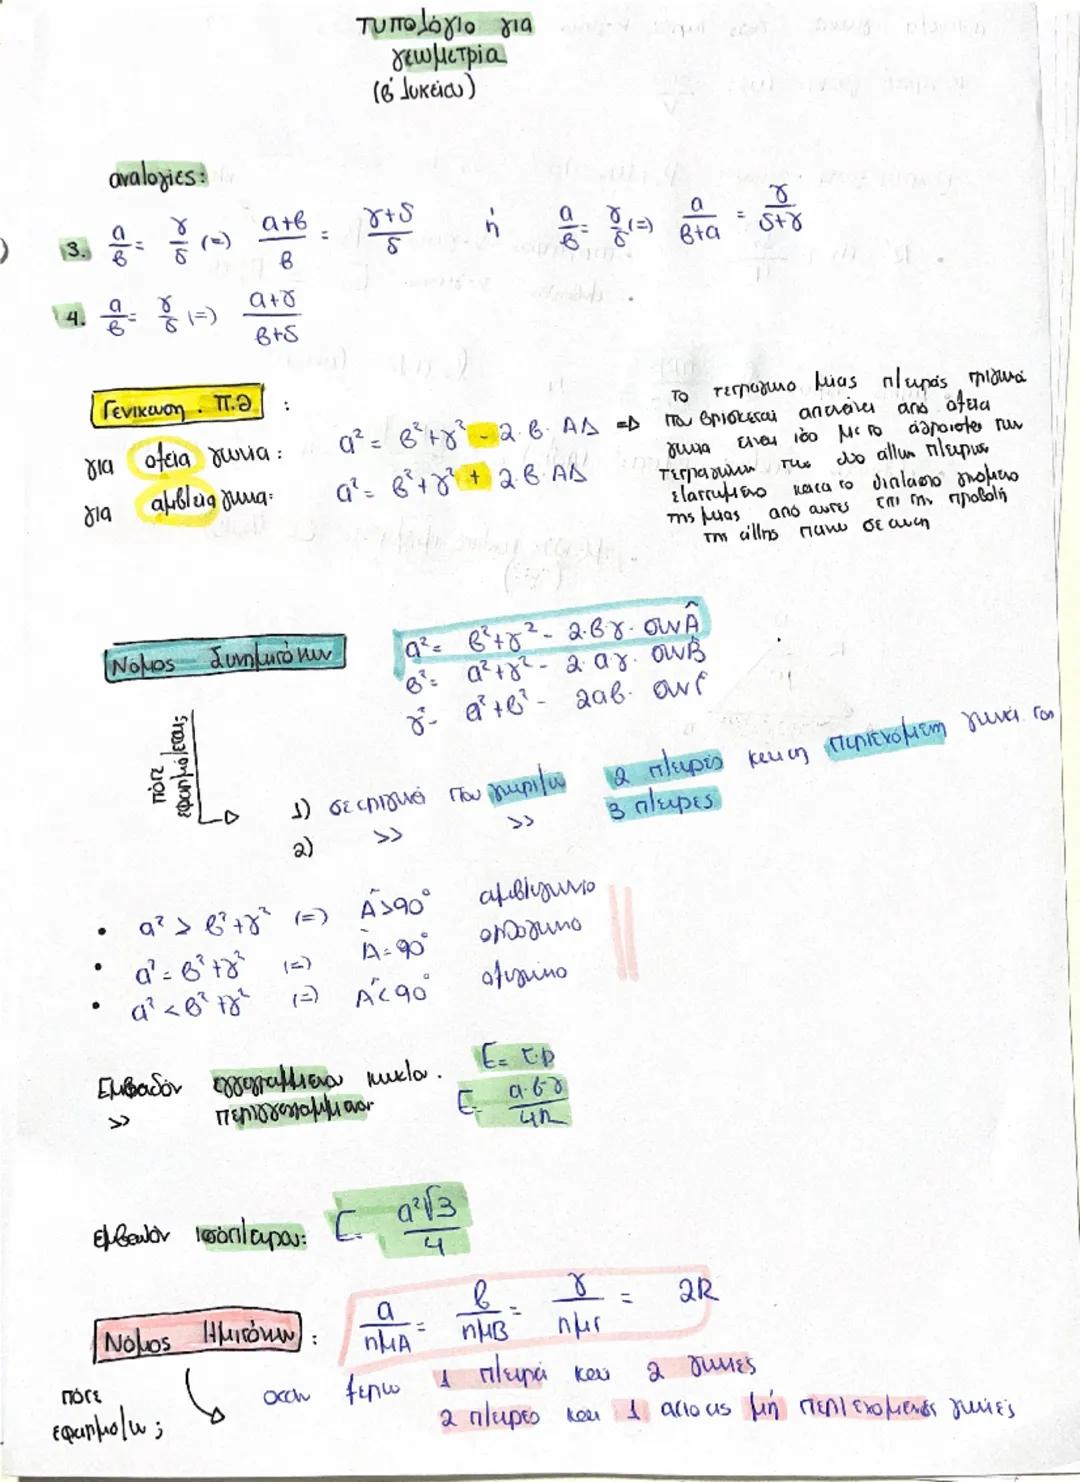 τυπολόγιο για
γεωμετρία
(β' λυκείου)
αναλογίες:
3. α/β = γ/δ (=) α+β/β = γ+δ/δ ή α/β = γ/δ (=) α/β+α = γ/δ+γ
4. α/β = γ/δ (=) α+γ/β+δ
Γενίκευση . Π.Θ :
για οξεία γωνία: α² = β²+γ² - 2·β·ΑΔ =>
για αμβλεία γωνία: α² = β²+γ² + 2·β·ΑΔ
Το τετράγωνο μίας πλευράς τριγώνου
που βρίσκεται απέναντι από οξεία
γωνία είναι ίσο με το άθροισμα των
τετραγώνων των δύο άλλων πλευρών
ελαττωμένο κατά το διπλάσιο γινόμενο
της μίας από αυτές επί την προβολή
της άλλης πάνω σε αυτή
Νόμος Συνημιτόνων
α² = β²+γ² - 2·βγ· συνÂ
β² = α²+γ² - 2·αγ· συνΒ̂
γ² = α²+β² - 2αβ· συνΓ̂
πότε
εφαρμόζεται;
1) σε τρίγωνα που γνωρίζω 2 πλευρές και τη περιεχόμενη γωνία τους
2) >> >> 3 πλευρες
• α² > β²+γ² (=) Â>90° αμβλυγώνιο
• α² = β²+γ² (=) Â=90° ορθογώνιο
• α² < β²+γ² (=) Â<90° οξυγώνιο
Εμβαδόν εγγεγραμμένου κύκλου. Ε= τ·ρ
>> περιγγεγραμμένου Ε= α·β·γ/4R
εμβαδόν ισόπλευρου: Ε= α²√3/4
Νόμος Ημιτόνων : α/ημΑ = β/ημΒ = γ/ημΓ = 2R
πότε
εφαρμόζω;
οταν ξερω 1 πλευρά και 2 γωνίες
2 πλευρές και 1 από τις μή περιεχόμενες γωνίες